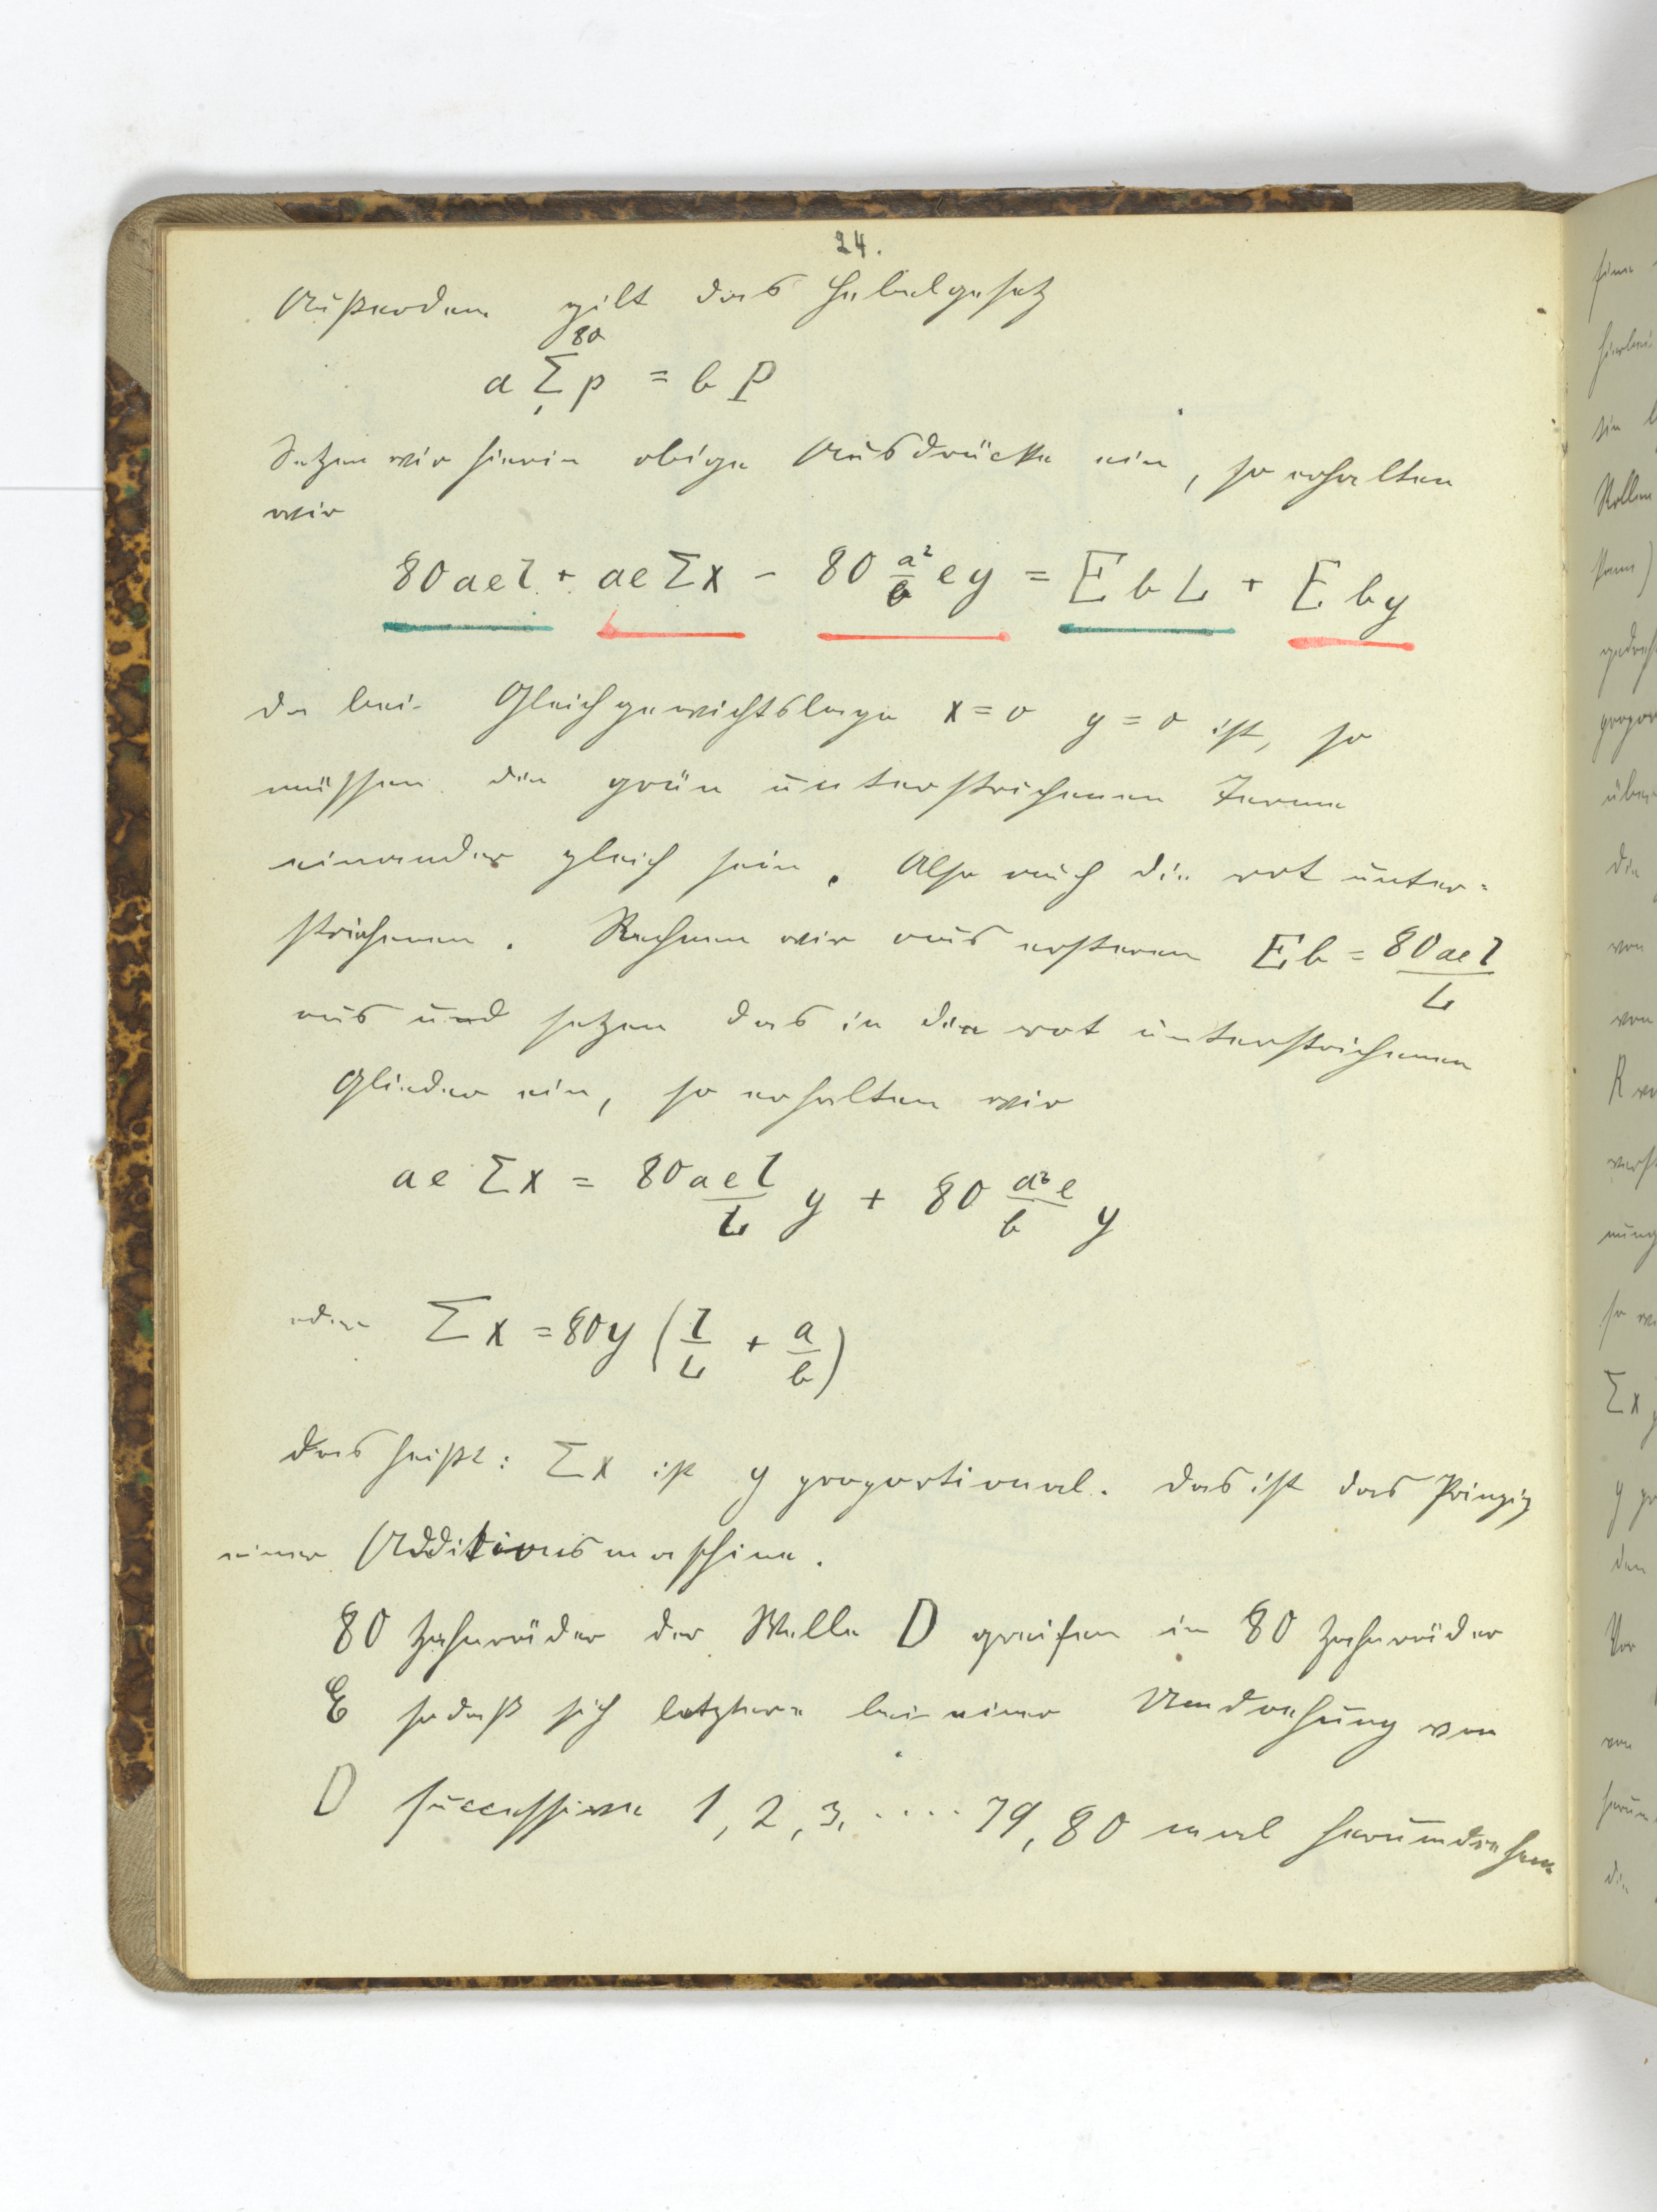 24.
Außerdem gilt das Hebelgesetz
a Σ₁⁸⁰ p = b P
Setzen wir hierin obige Ausdrücke ein, so erhalten
wir
80 a e l + a e Σ x - 80 a²/b e y = E b L + E b y
da bei Gleichgewichtslage x = 0 y = 0 ist, so
müssen die grün unterstrichenen Terme
einander gleich sein. Also auch die rot unter=
strichenen. Rechnen wir aus ersteren E b = 80 a e l / L
aus und setzen das in die rot unterstrichenen
Glieder ein, so erhalten wir
a e Σ x = 80 a e l / L y + 80 a² e / b y
oder Σ x = 80 y ( l/L + a/b )
das heißt: Σ x ist y proportional. Das ist das Prinzip
einer Additionsmaschine.
80 Zahnräder der Welle D greifen in 80 Zahnräder
E sodaß sich letztere bei einer Umdrehung von
D successive 1, 2, 3, .... 79, 80 mal herumdrehen